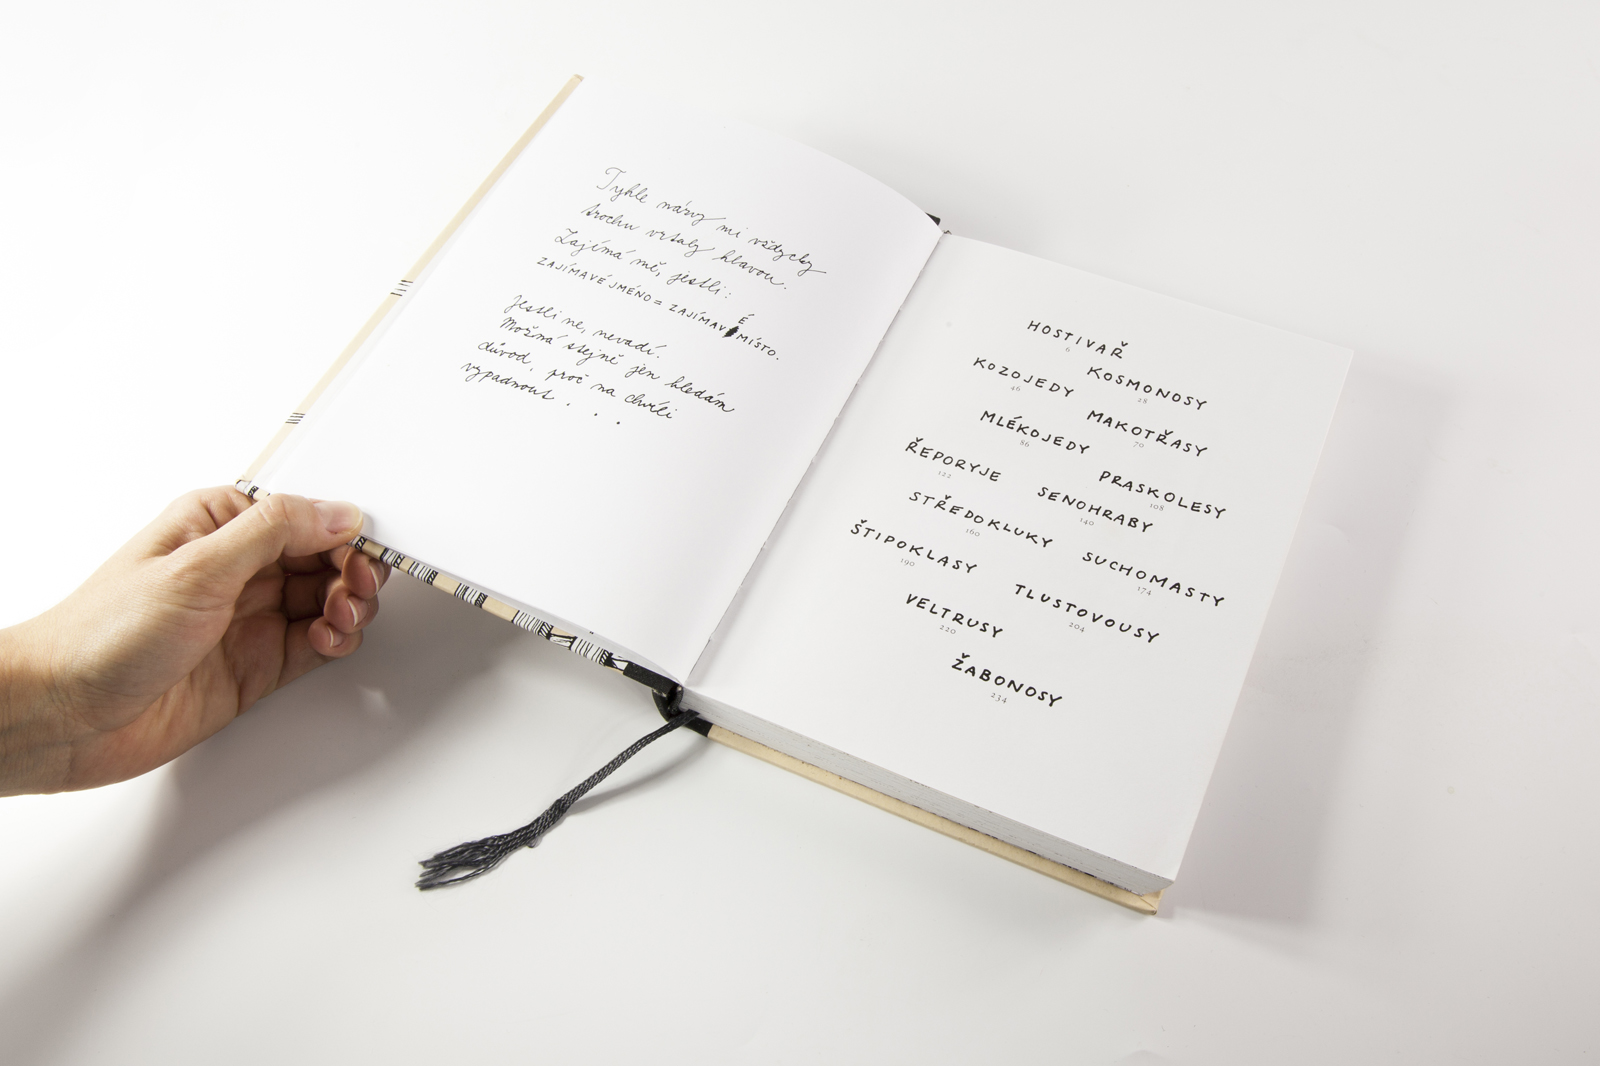 Tyhle názvy mi vždycky
trochu vrtaly hlavou.
Zajímá mě, jestli:
ZAJÍMAVÉ JMÉNO = ZAJÍMAVÉ MÍSTO.
Jestli ne, nevadí.
Možná stejně jen hledám
důvod, proč na chvíli
vypadnout . . .
HOSTIVAŘ
6
KOSMONOSY
28
KOZOJEDY
46
MAKOTŘASY
70
MLÉKOJEDY
86
PRASKOLESY
108
ŘEPORYJE
122
SENOHRABY
140
STŘEDOKLUKY
160
SUCHOMASTY
174
ŠTIPOKLASY
190
TLUSTOVOUSY
204
VELTRUSY
220
ŽABONOSY
234